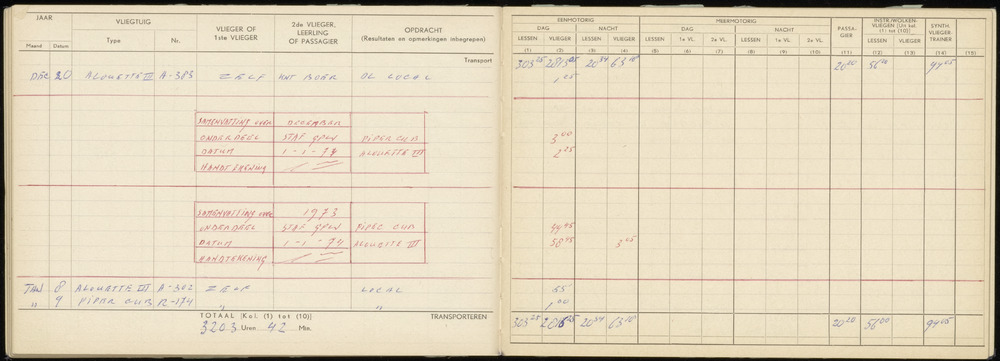 JAAR
VLIEGTUIG
VLIEGER OF
1ste VLIEGER
2de VLIEGER,
LEERLING
OF PASSAGIER
OPDRACHT
(Resultaten en opmerkingen inbegrepen)
Maand Datum Type Nr.
Transport
DEC 20 ALOUETTE III A-383 ZELF KNT BOER OL LOCAL
SAMENVATTING OVER DECEMBER
ONDERDEEL STAF GPLV PIPER CUB
DATUM 1-1-74 ALOUETTE III
HANDTEKENING
SAMENVATTING OVER 1973
ONDERDEEL STAF GPLV PIPER CUB
DATUM 1-1-74 ALOUETTE III
HANDTEKENING
JAN 8 ALOUETTE III A-302 ZELF LOCAL
" 9 PIPER CUB R-174 " "
TOTAAL [Kol. (1) tot (10)]
3203 Uren 42 Min.
TRANSPORTEREN
EENMOTORIG MEERMOTORIG PASSA-
GIER INSTR./WOLKEN-
VLIEGEN [Uit kol.
(1) tot (10)] SYNTH.
VLIEGER-
TRAINER
DAG NACHT DAG NACHT
LESSEN VLIEGER LESSEN VLIEGER LESSEN 1e VL. 2e VL. LESSEN 1e VL. 2e VL. LESSEN VLIEGER
(1) (2) (3) (4) (5) (6) (7) (8) (9) (10) (11) (12) (13) (14) (15)
303 25 20 54 63 18 20 20 56 00 94 05
1 05
3 00
2 25
44 45
58 45 3 05
55
1 00
303 25 20 54 63 18 20 20 56 00 94 05